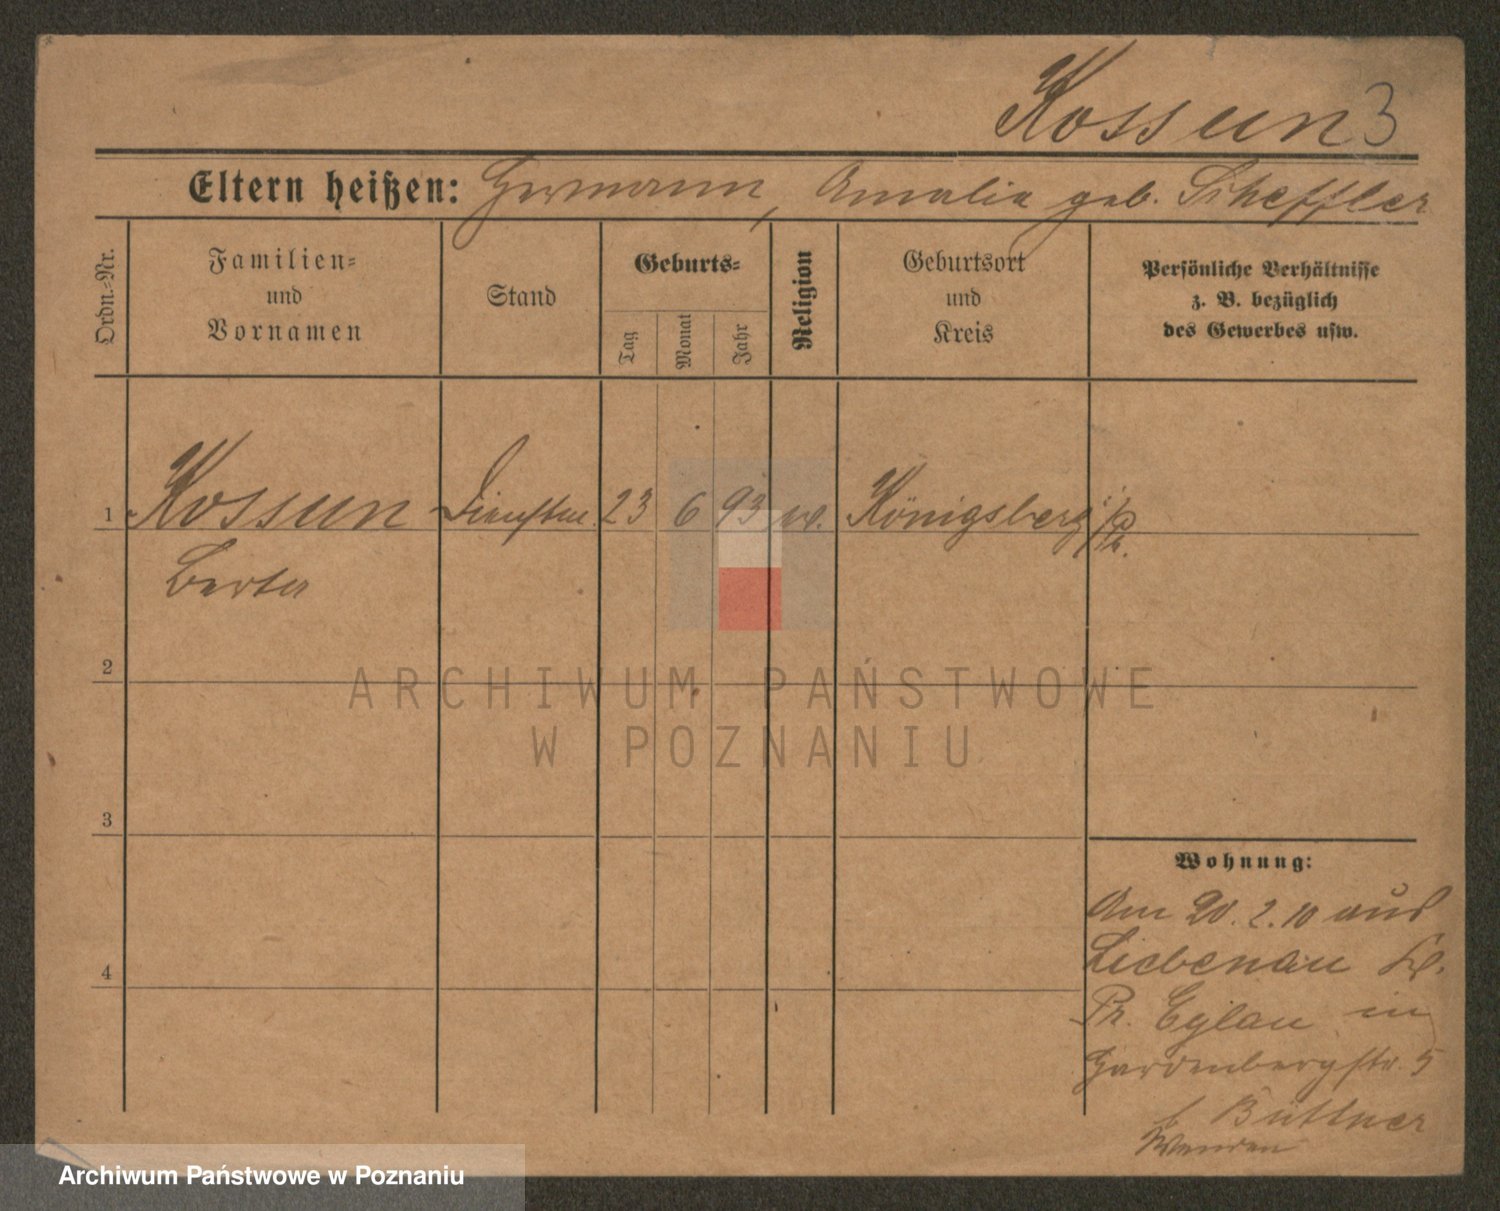 Kossun 3
Eltern heißen: Hermann, Amalia geb. Scheffler
Ordn.-Nr.
Familien-
und
Vornamen
Stand
Geburts-
Tag
Monat
Jahr
Religion
Geburtsort
und
Kreis
Persönliche Verhältnisse
z. B. bezüglich
des Gewerbes usw.
1 Kossun 23 6 93 Königsberg i/Pr.
Berta
2
3
4
Wohnung:
Am 20.2.10 aus
Liebenau Kr.
Pr. Eylau in
Hardenbergstr. 5
b Büttner
Wenden
ARCHIWUM PAŃSTWOWE
W POZNANIU
Archiwum Państwowe w Poznaniu